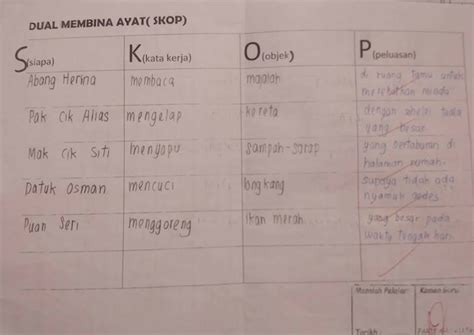 DUAL MEMBINA AYAT( SKOP)
S(siapa) K(kata kerja) O(objek) P(peluasan)
Abang Herina membaca majalah di ruang tamu untuk
merehatkan minda
Pak cik Alias mengelap kereta dengan sehelai tuala
yang besar.
Mak cik Siti menyapu sampah-sarap yang bertaburan di
halaman rumah.
Datuk Osman mencuci longkang supaya tidak ada
nyamuk aedes.
Puan Seri menggoreng ikan merah yang besar pada
waktu tengah hari.
Markah Pelajar: Komen Guru:
Tarikh: